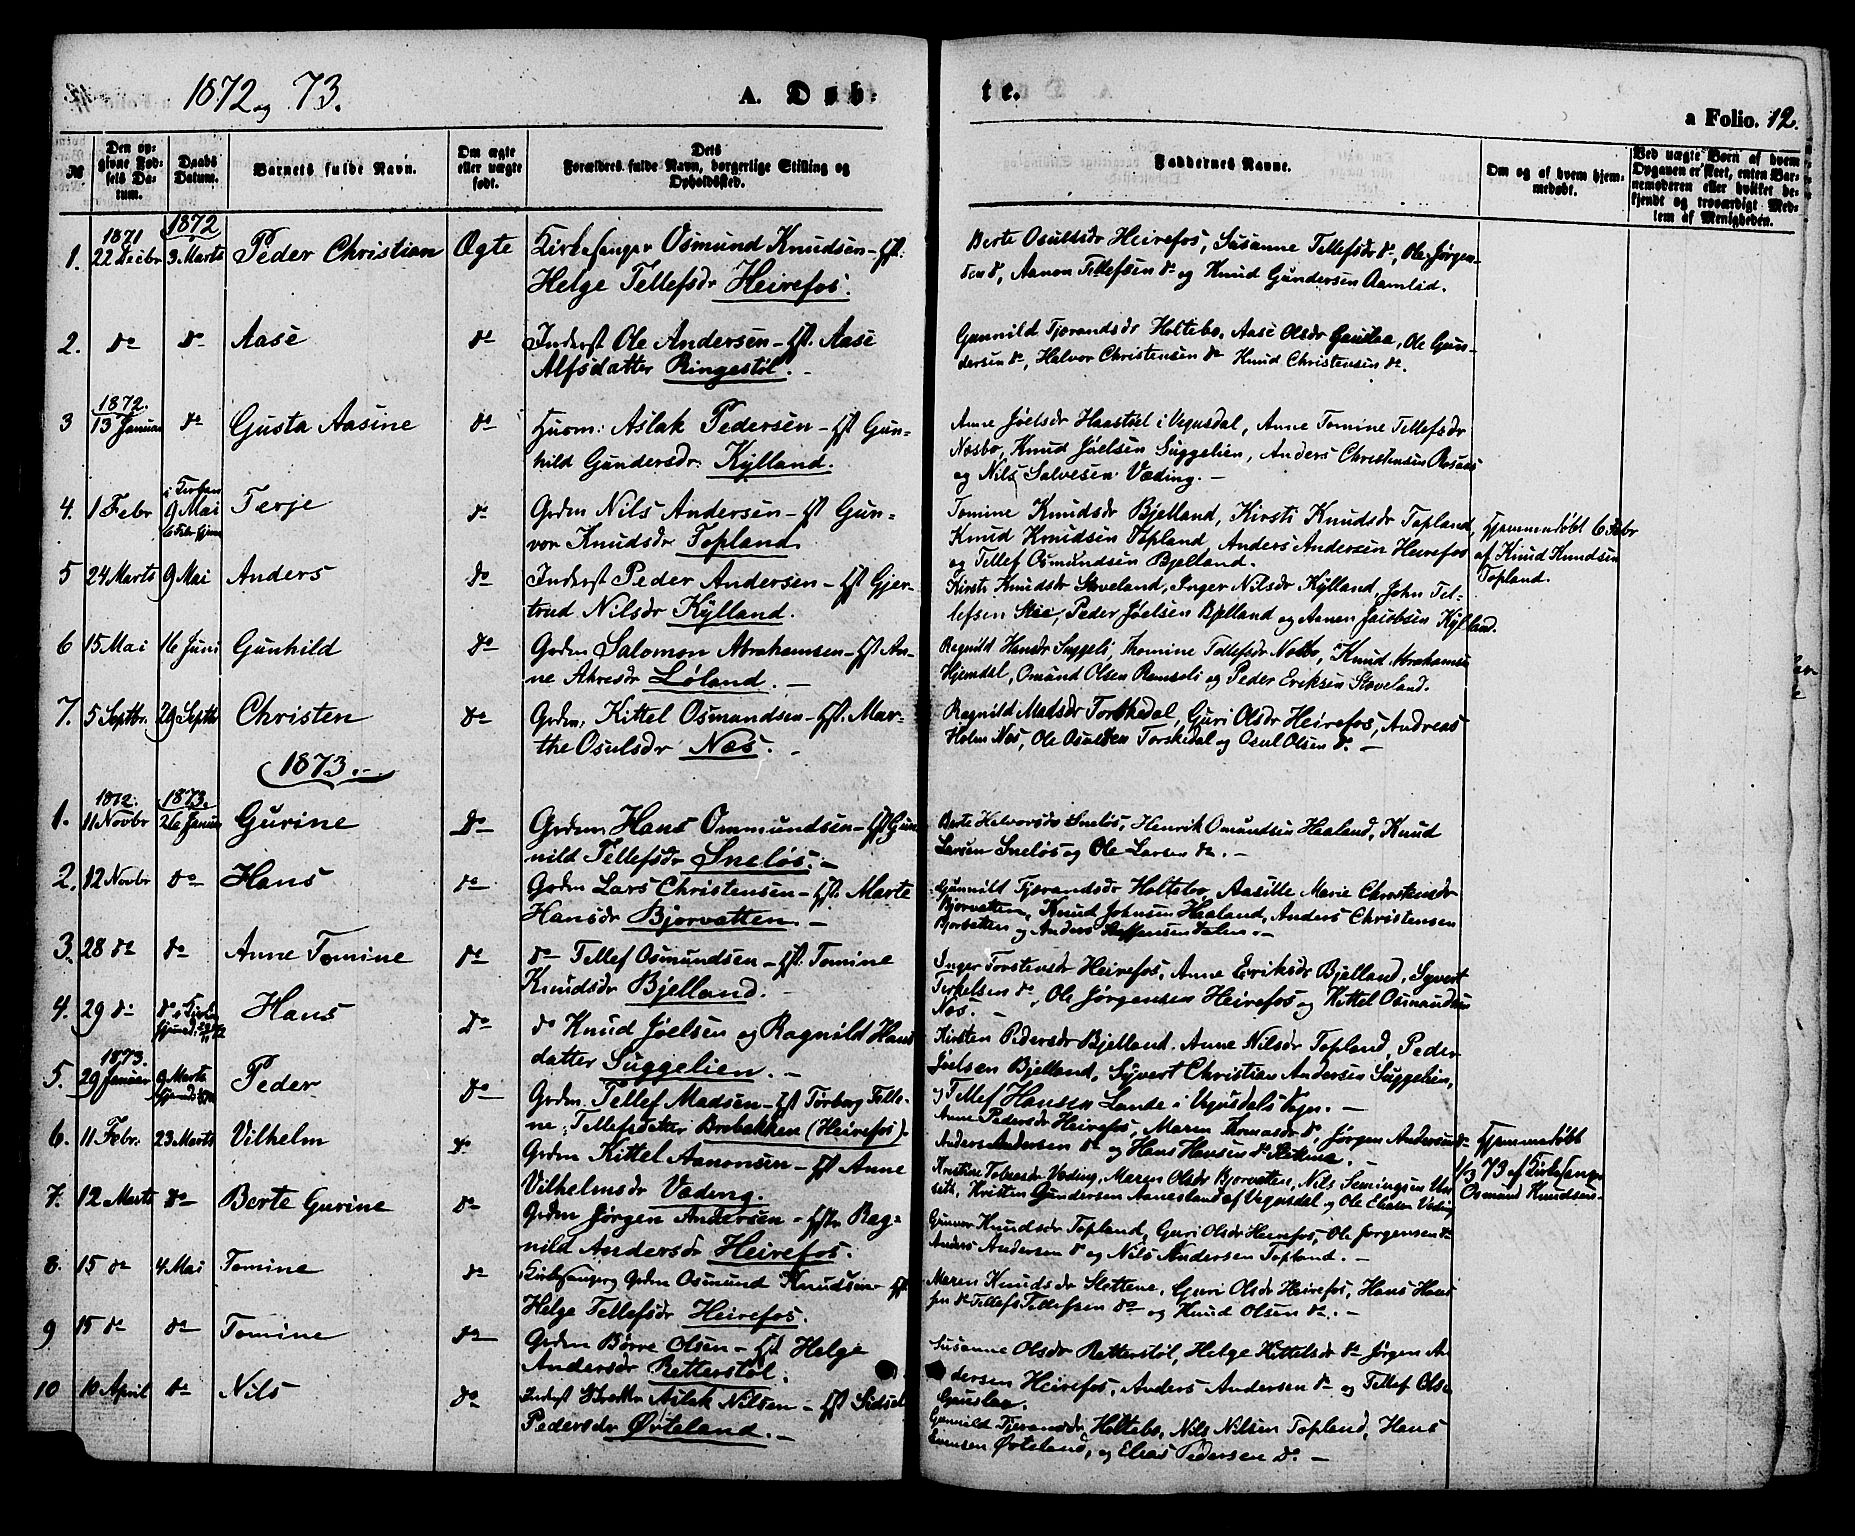 1872 og 73.
A. Døb-
te.
a Folio. 12.
№
Den op-
givne Fød-
sels Da-
tum.
Daabs
Datum.
Barnets fulde Navn.
Om ægte
eller uægte
født.
Dets
Forældres fulde Navn, borgerlige Stilling og
Opholdssted.
Faddernes Navne.
Om og af hvem hjem-
medøbt.
Ved uægte Børn af hvem
Opgaven er skeet, enten Bar-
nemoderen eller hvilket be-
kjendt og troværdigt Med-
lem af Menigheden.
1871
1872
1. 22 Decbr 3 Marts Peder Christian Ægte Kirkesanger Osmund Knudsen – Hst.
Helge Tellefsdr Heirefos.
Berte Osulsdr Heirefos, Susanne Tellefsdr do, Ole Jørgen-
sen do, Aanon Tellefsen do og Knud Gundersen Aamlid.
2. do do Aase do Inderst Ole Andersen – Hst. Aase
Alfsdatter Ringestøl. –
Gunnild Tjorandsdr Holtebo, Aase Olsdr Gauslaa, Ole Gun-
dersen do, Halvor Christensen do Knud Christensen do.
1872.
3 13 Januar do Gusta Aasine do Huсm: Aslak Pedersen – Hst Gun-
hild Gundersdr. Kylland.
Anne Jøelsdr Haastøl i Vegusdal, Anne Tomine Tellefsdr
Næsbø, Knud Jøelsen Suggelien, Anders Christensen
og Nils Salvesen Væding. –
4. 1 Febr 9 Mai Terje do Grdm Nils Andersen – Hst Gun-
vor Knudsdr Topland.
Tomine Knudsdr Bjelland, Kirsti Knudsdr Topland,
Knud Knudsen Topland, Anders Andersen Heirefos
og Tellef Osmundsen Bjelland.
Hjemmedøbt 6 Febr
af Knud Knudsen
Topland.
5 24 Marts 9 Mai Anders do Inderst Peder Andersen – Hst Gjer-
trud Nilsdr Kylland.
Kirsti Knudsdr Staveland, Inger Nilsdr Kylland, John Tel-
lefsen Staa, Peder Jøelsen Bjelland og Aanon Jacobsen Kylland.
6 15 Mai 16 Juni Gunhild do Grdm Salomon Abrahamsen – Hst An-
ne Ahresdr Løland. –
Ragnild Hansdr Suggeli, Thomine Tellefsdr Næsbø, Knud Abrahamsen
Hjemdal, Omund Olsen Ramseli og Peder Eriksen Staveland.
7. 5 Septbr. 29 Septbr Christen do Grdm: Kittel Osmundsen – Hst. Mar-
the Osulsdr Næs. –
Ragnild Madsdr Torskedal, Guri Olsdr Heirefos, Andreas
Holm Næs, Ole Osulsen Torskedal og Osul Olsen do. –
1873. –
1872.
1873.
1. 11 Novbr 26 Januar Gurine do Grdm Hans Ommundsen – Hst Gun-
nild Tellefsdr Sneløs. –
Berte Halvorsdr Sneløs, Henrik Omundsen Haaland, Knud
Larsen Sneløs og Ole Larsen do. –
2. 12 Novbr do Hans do Grdm Lars Christensen – Hst. Marte
Hansdr Bjorvatten. –
Gunnild Tjorandsdr Holtebo, Aasille Marie Christensdr
Bjorvatten, Knud Johnsen Haaland, Anders Christensen
Bjorvatten og Anders Steffensen Dalen. –
3. 28 do do Anne Tomine do do Tellef Osmundsen – Hst. Tomine
Knudsdr Bjelland. –
Inger Torstensdr Heirefos, Anne Eriksdr Bjelland, Syvert
Terkelsen do, Ole Jørgensen Heirefos og Kittel Osmundsen
Næs. –
4. 29 do do Hans do do Knud Jøelsen og Ragnild Hans
datter Suggelien. –
Kirsten Pedersdr Bjelland, Anne Nilsdr Topland, Peder
Jøelsen Bjelland, Syvert Christian Andersen Suggelien,
og Tellef Hansen Lande i Vegusdals Sogn. –
1873.
5. 29 Januar 9 Marts Peder do Grdm. Tellef Madsen – Hst Torborg Telle-
ne, Tellefsdatter Brobakken (Heirefos). –
Anne Pedersdr Heirefos, Maren Thomasdr do, Jørgen Andersen do
Anders Andersen do og Hans Hansen do Slettene. –
6. 11 Febr. 23 Marts Vilhelm do Grdm Kittel Aanonsen – Hst Anne
Vilhelmsdr Væding.
Kristine Tobiasdr Væding, Maren Olsdr Bjorvatten, Nils Semingsen
Kristen Gundersen Aanesland af Vegusdal og Ole Eliasen Væding
Hjemmedøbt
1/3 73 af Kirkesanger
Osmund Knudsen.
7. 12 Marts do Berte Gurine do Grdm Jørgen Andersen – Hst. Rag-
nild Andersdr Heirefos.
Gunvor Knudsdr Topland, Guri Olsdr Heirefos, Ole Jørgensen do
Anders Andersen do og Nils Andersen Topland. –
8. 15 do 4 Mai Tomine do Kirkesanger og Grdm Osmund Knudsen – Hst.
Helge Tellefsdr Heirefos.
Maren Knudsdr Slettene, Guri Olsdr Heirefos, Hans Han-
sen do Tellef Tellefsen do og Knud Olsen do. –
9 15 do do Tomine do Grdm Børre Olsen – Hst Helge
Andersdr Retterstøl.
Susanne Olsdr Retterstøl, Helge Kittelsdr do Jørgen An-
dersen Heirefos, Anders Andersen do og Tellef Olsen
Gauslaa.
10 10 April do Nils do Inderst Aslak Nilsen – Hst Sidsel
Pedersdr Østeland. –
Gunnild Tjorandsdr Holtebo, Nils Nilsen Topland, Hans
Evensen Østeland, og Elias Pedersen do. –